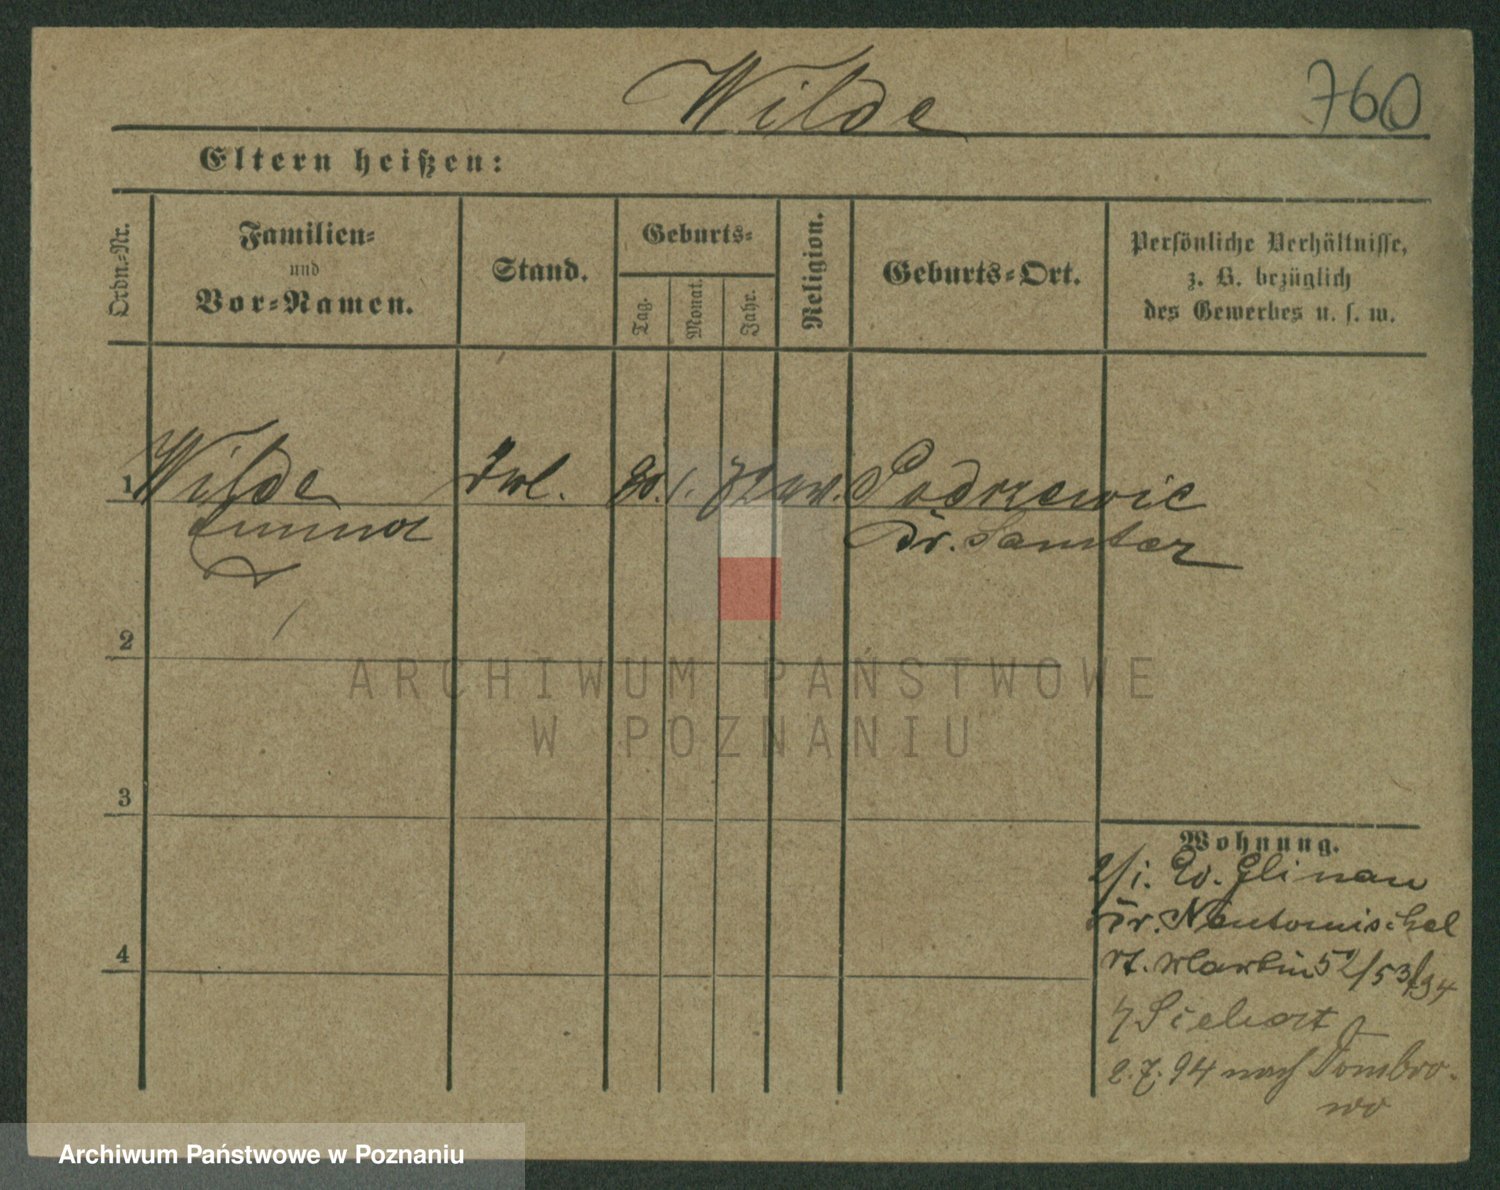 Wilde 760
Eltern heißen:
Ordn.-Nr.
Familien-
und
Vor-Namen.
Stand.
Geburts-
Tag.
Monat.
Jahr.
Religion.
Geburts-Ort.
Persönliche Verhältnisse,
z. B. bezüglich
des Gewerbes u. s. w.
1 Wilde 1. 72 Podrzewic
Emma Kr. Samter
2
3
4
Wohnung.
2/1. Glinau
Kr. Neutomischel
Martin 52/53
Siebart
2.7.94 nach Dombro-
wo
ARCHIWUM PAŃSTWOWE
W POZNANIU
Archiwum Państwowe w Poznaniu